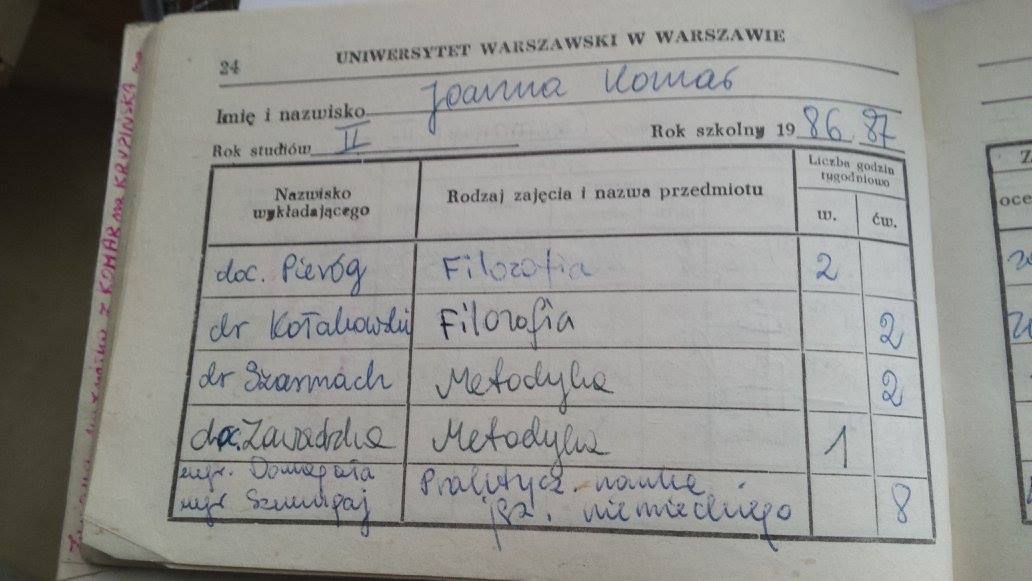 24
UNIWERSYTET WARSZAWSKI W WARSZAWIE
Imię i nazwisko Joanna Komar
Rok studiów II Rok szkolny 1986/87
Nazwisko wykładającego
Rodzaj zajęcia i nazwa przedmiotu
Liczba godzin tygodniowo
w. ćw.
doc. Pieróg Filozofia 2
dr Kołakowski Filozofia 2
dr Szarmach Metodyka 2
doc. Zawadzka Metodyka 1
mgr. Domagała
mgr Szumigaj
Praktycz. nauka
jęz. niemieckiego 8
Z
oce
Z KOMAR na KRUPIŃSKA